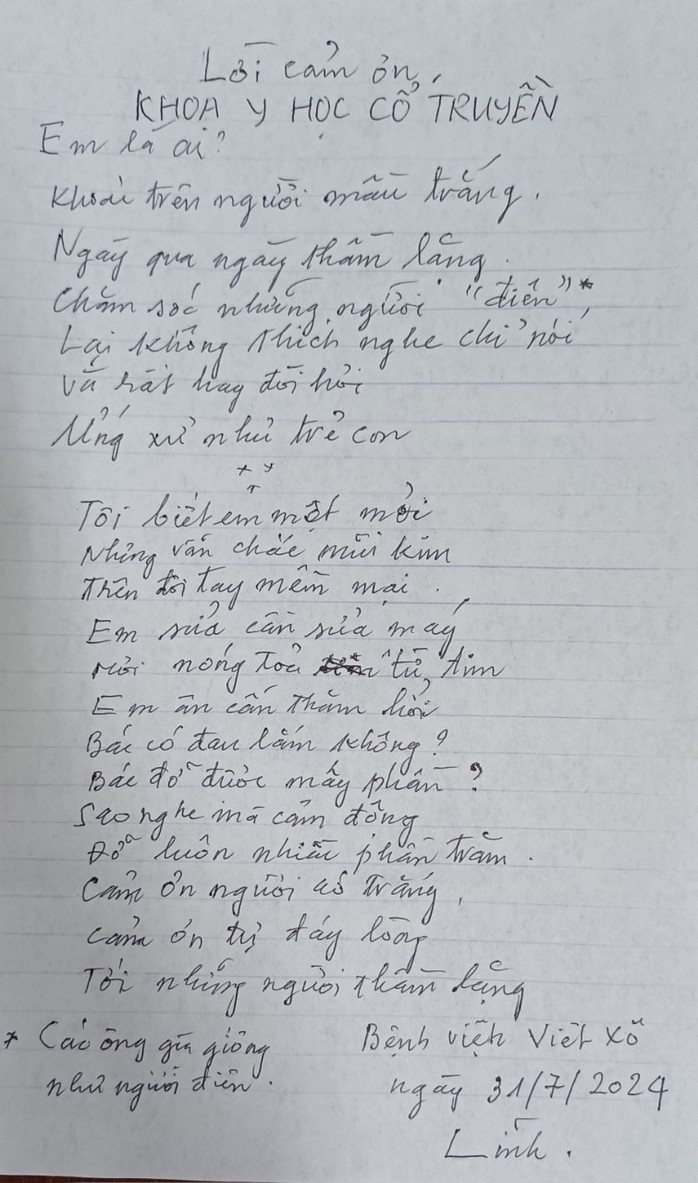 Lời cảm ơn
KHOA Y HỌC CỔ TRUYỀN
Em là ai?
Khoác trên người màu trắng.
Ngày qua ngày thầm lặng.
Chăm sóc những người "điên"*
Lại không thích nghe chỉ nói
Và rất hay đòi hỏi
Ứng xử như trẻ con
Tôi biết em mệt mỏi
Những vẫn chắc mũi kim
Trên đôi tay mềm mại.
Em sửa cần sửa máy
Hơi nóng toả từ tim
Em ân cần thăm hỏi
Bác có đau lắm không?
Bác đỡ được mấy phần?
Sao nghe mà cảm động
Đỡ luôn nhiều phần trăm.
Cảm ơn người áo trắng,
Cảm ơn tự đáy lòng
Tới những người thầm lặng
* Các ông già giống
như người điên.
Bệnh viện Việt Xô
ngày 31/7/2024
Linh.